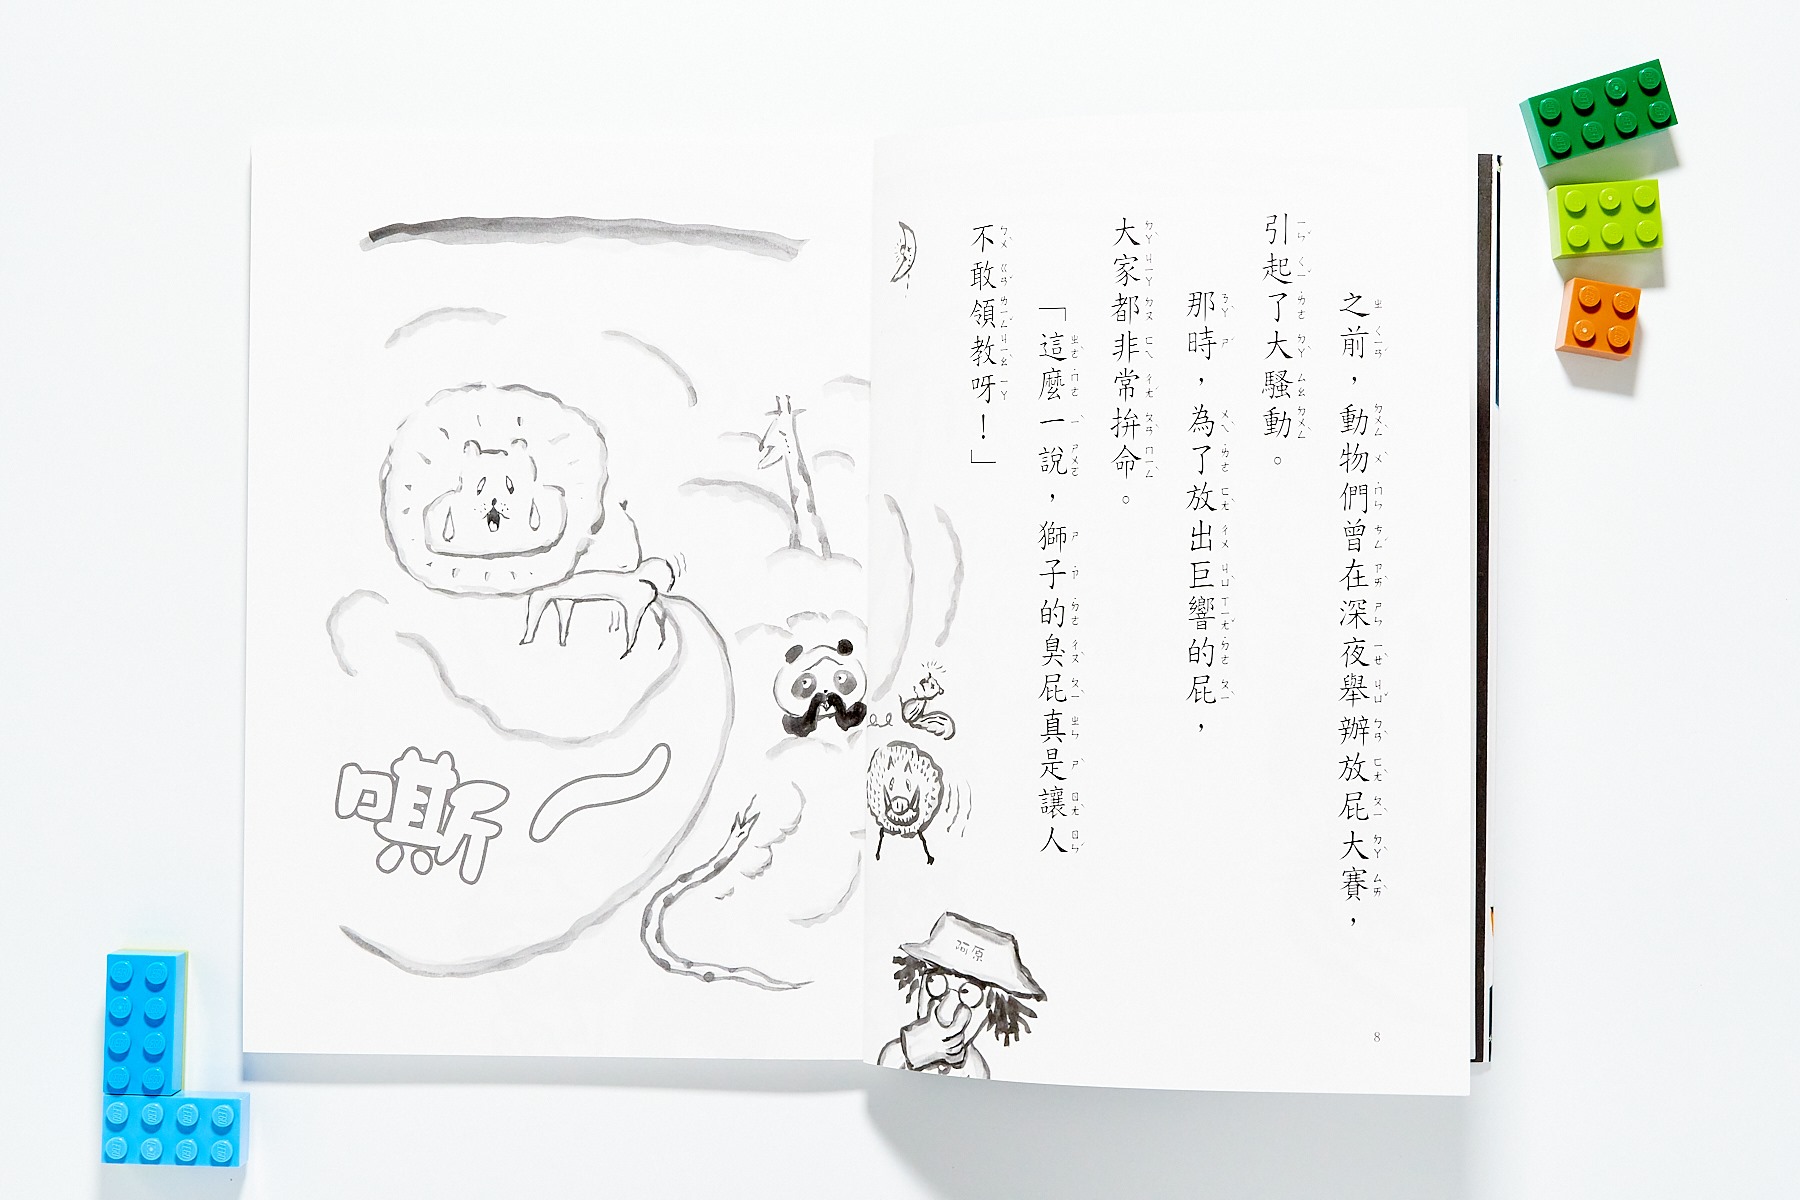 之前，動物們曾在深夜舉辦放屁大賽，
引起了大騷動。
那時，為了放出巨響的屁，
大家都非常拚命。
「這麼一說，獅子的臭屁真是讓人
不敢領教呀！」
阿原
8
噗斯